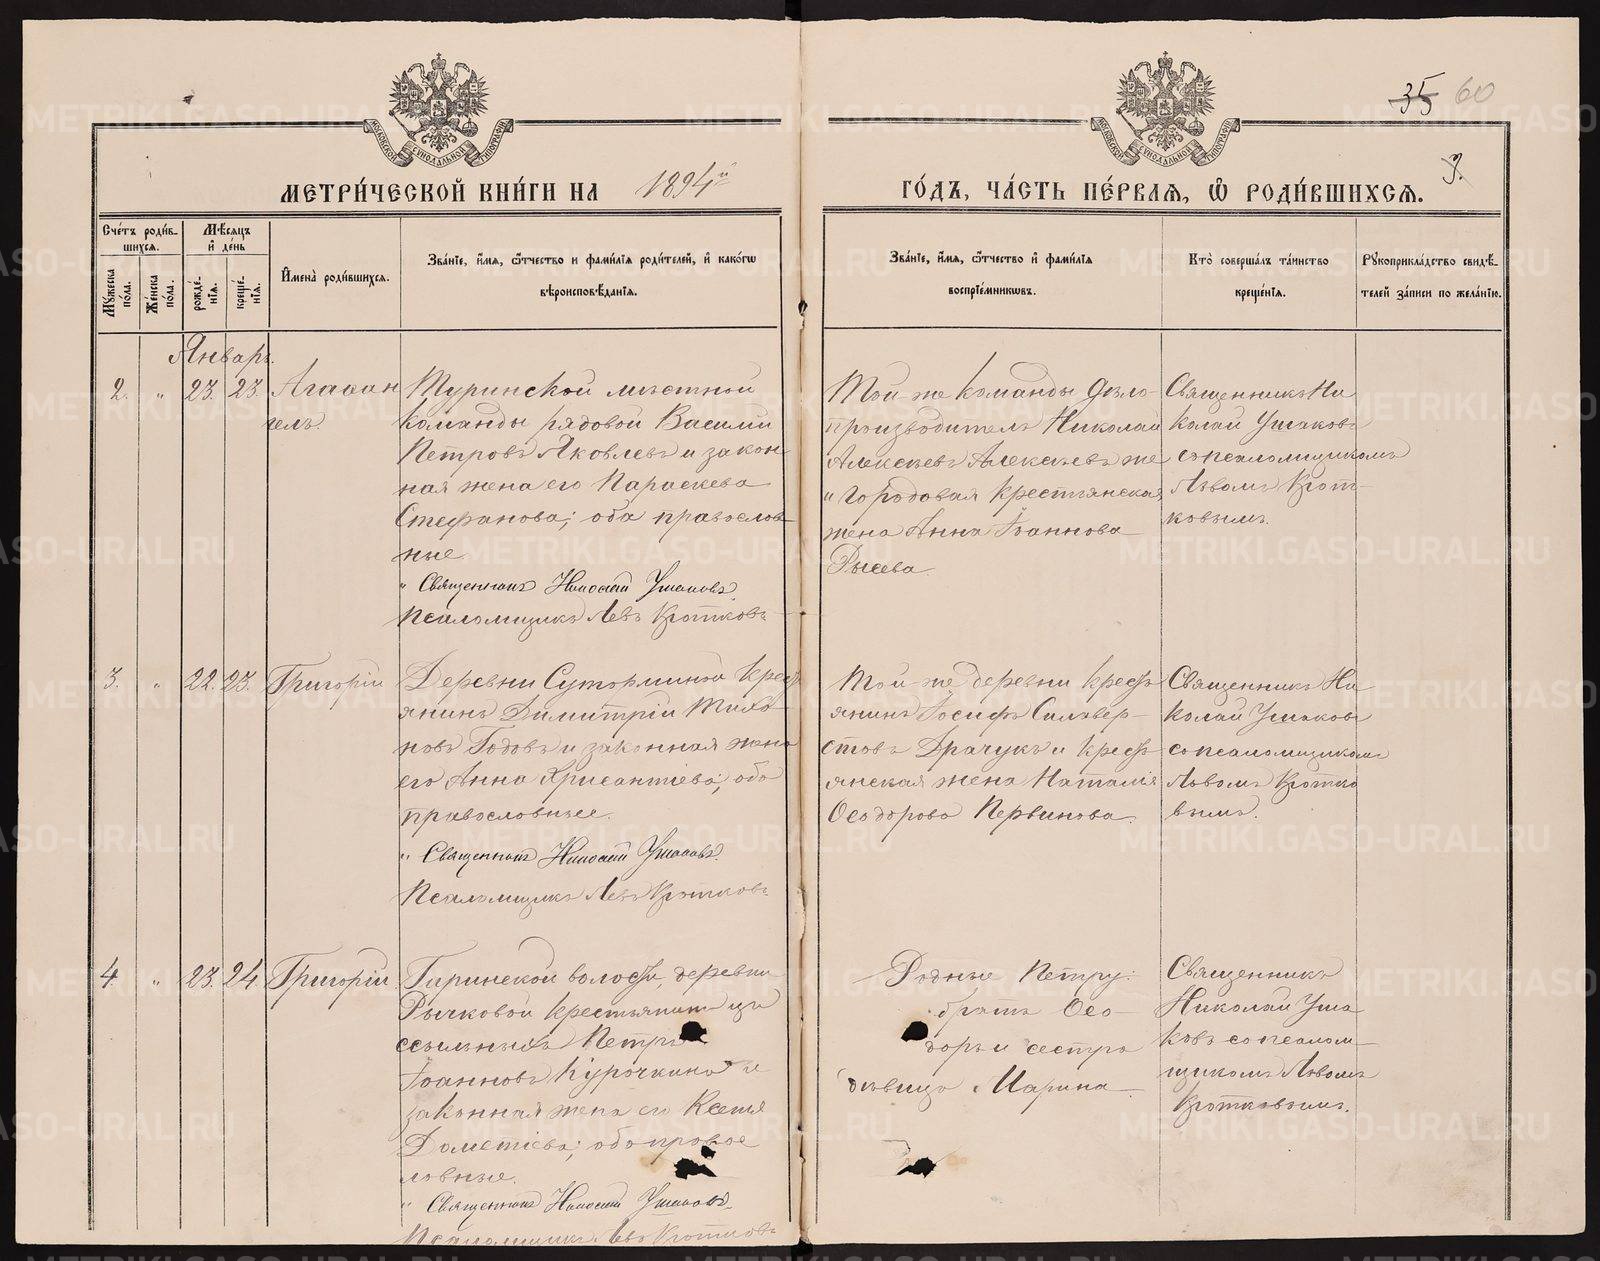 35 60
3.
МЕТРИ́ЧЕСКОЙ КНИ́ГИ НА 1894й
ГО́ДЪ, ЧА́СТЬ ПЕ́РВАЯ, Ѡ҆ РОДИ́ВШИХСЯ.
Сче́тъ роди́в-
шихся.
Му́жеска по́ла.
Же́нска по́ла.
Мѣ́сяцъ
и҆ де́нь
рожде́-
нїя.
креще́-
нїя.
И҆мена̀ роди́вшихся.
Зва́нїе, и҆́мя, ѻ҆́тчество и фами́лїя роди́телей, и҆ како́гѡ
вѣроисповѣ́данїя.
Зва́нїе, и҆́мя, ѻ҆́тчество и҆ фами́лїя
воспрїе́мниковъ.
Кто̀ соверша́лъ та́инство
креще́нїя.
Рꙋкоприкла́дство свидѣ́-
телей за́писи по жела́нїю.
Январь.
2. „ 23. 23. Агаѳан
гелъ
Туринской мѣстной
команды рядовой Василій
Петровъ Яковлевъ и закон
ная жена его Параскева
Стефанова; оба православ
ные.
„ Священникъ Николай Ушаковъ.
Псаломщикъ Левъ Кротковъ
Той-же команды дѣло-
производитель Николай
Алексѣевъ Алексѣевъ же
„ Городовая крестьянская
жена Анна Іоаннова
Рысева
Священникъ Ни
колай Ушаковъ
съ псаломщикомъ
Львомъ Крот-
ковымъ.
3. „ 22. 23. Григорій
Деревни Суторминой крест
янинъ Димитрій Тихо-
новъ Годовъ и законная жена
его Анна Хрисантіева; оба
православные.
„ Священникъ Николай Ушаковъ.
Псаломщикъ Левъ Кротковъ
Той-же деревни крест
янинъ Іосифъ Сильвер-
стовъ Драчукъ и крест
янская жена Наталія
Ѳеодорова Первинова.
Священникъ Ни
колай Ушаковъ
съ псаломщикомъ
Львомъ Кротко
вымъ.
4 „ 23. 24. Григорій
Гаринской волости, деревни
Рычковой крестьянинъ изъ
ссыльныхъ Петръ
Іоанновъ Курочкинъ и
законная жена его Ксенія
Дометіева; оба правос
лавные.
„ Священникъ Николай Ушаковъ.
Псаломщикъ Левъ Кротковъ
Родные Петру:
братъ Ѳео-
доръ и сестра
дѣвица Марина
Священникъ
Николай Уша
ковъ съ псалом-
щикомъ Львомъ
Кротковымъ.